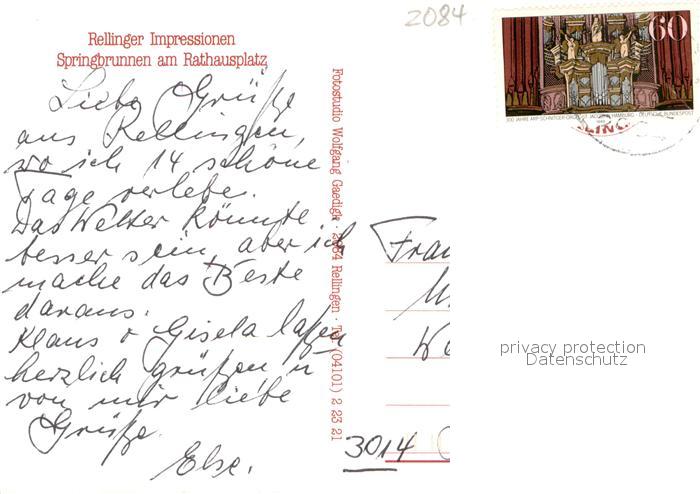 2084
Rellinger Impressionen
Springbrunnen am Rathausplatz
Liebe Grüße
aus Rellingen,
wo ich 14 schöne
Tage verlebe.
Das Wetter könnte
besser sein, aber ich
mache das Beste
daraus.
Klaus u Gisela laßen
herzlich grüßen u
von mir liebe
Grüße.
Else.
Fotostudio Wolfgang Gaedigk · 2084 Rellingen · Tel. (04101) 2 23 21
60
300 JAHRE ARP-SCHNITGER-ORGEL ST. JACOBI HAMBURG · DEUTSCHE BUNDESPOST
Frau
3014
privacy protection
Datenschutz